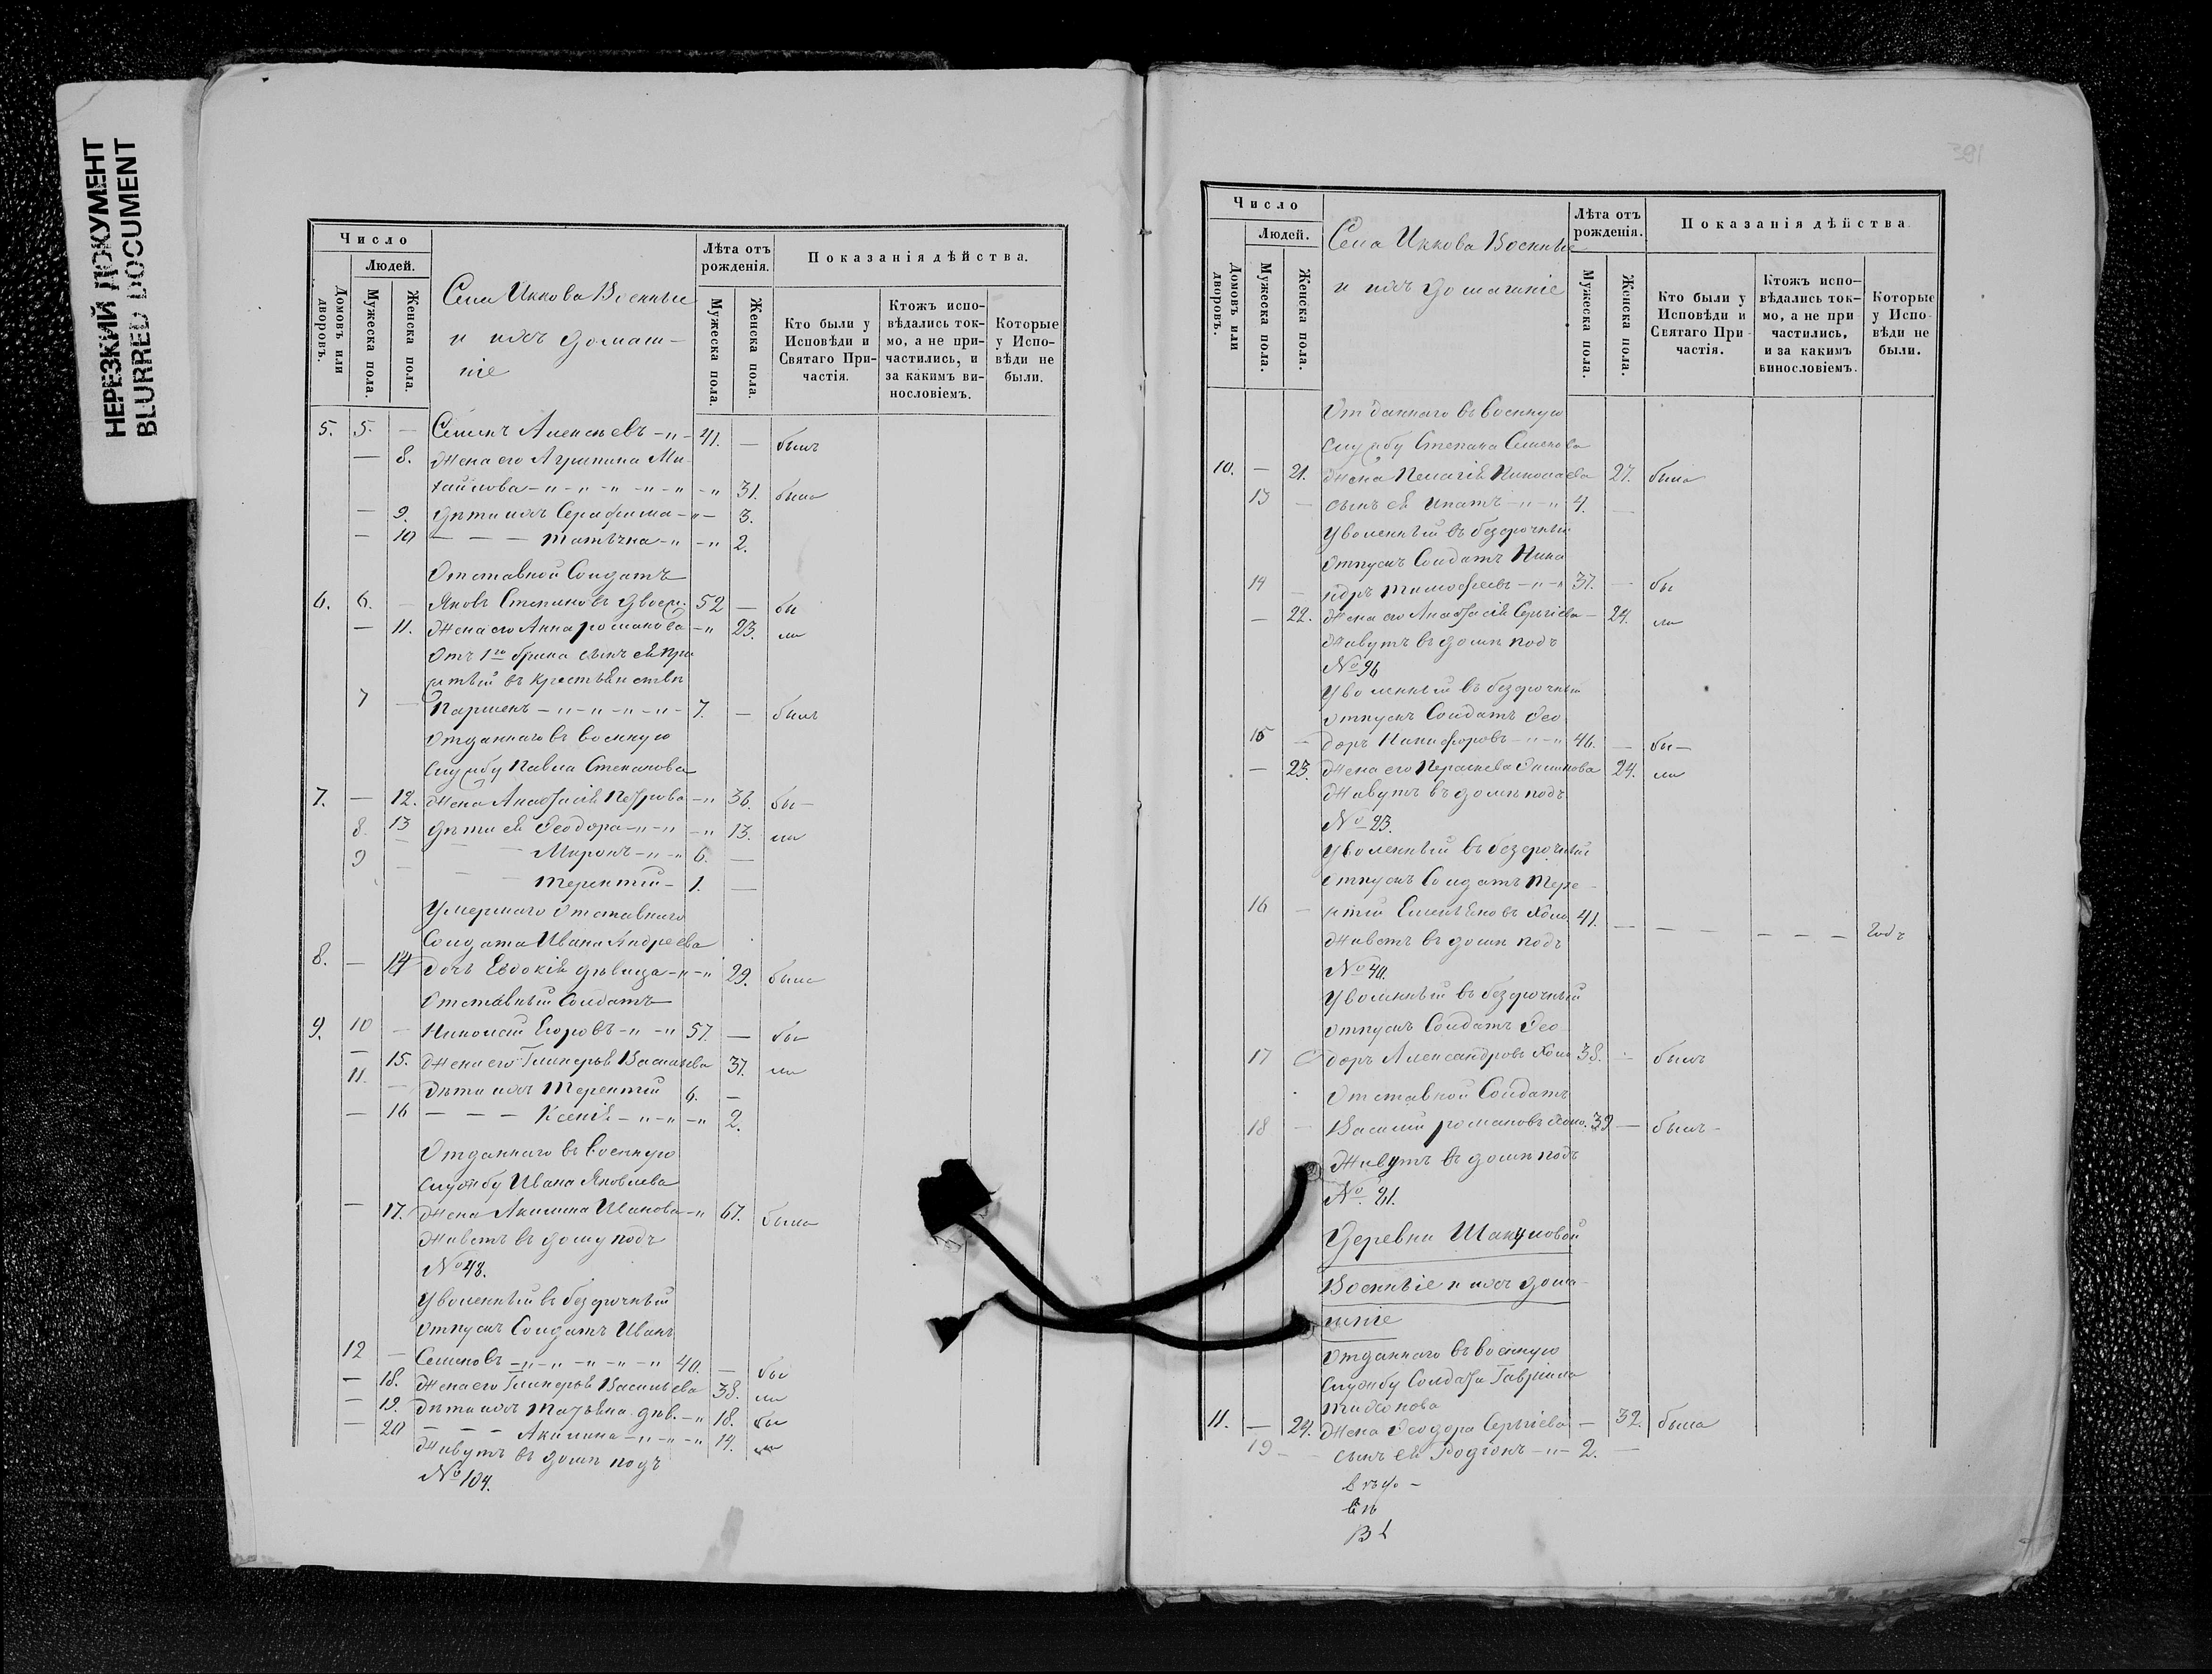 НЕРЕЗКИЙ ДОКУМЕНТ
BLURRED DOCUMENT
Число
Людей.
Домовъ или дворовъ.
Мужеска пола.
Женска пола.
Села Иккова Военные
и ихъ домаш-
ніе
Лѣта отъ рожденія.
Мужеска пола.
Женска пола.
Показанія дѣйства.
Кто были у Исповѣди и Святаго При-частія.
Ктожъ испо-вѣдались ток-мо, а не при-частились, и за какимъ ви-нословіемъ.
Которые у Испо-вѣди не были.
5. 5. — Семенъ Алексѣевъ -"- 41. — былъ
— 8. Жена его Агрипина Ми-
хайлова -"-"-"-"-" -" 31. была
— 9. Дѣти ихъ Серафима -"- 3.
— 10 — — — Татьяна -" -" 2.
Отставной Солдатъ
6. 6. — Яковъ Степановъ 52 — бы
— 11. Жена его Анна Романова -" 23. ли
Отъ 1го брака сынъ ея при
житый въ крестьянствѣ
7 — Парменъ -"-"-"-"- 7. — былъ
Отданнаго въ военную
службу Павла Степанова
7. — 12. Жена Анастасія Петрова -" 36. бы-
8. 13 Дѣти ея Ѳеодора -"-" -" 13. ли
9 — — — Миронъ -"-" 6. —
— — Терентій - 1. —
Умершаго отставнаго
Солдата Ивана Андреева
8. — 14 Дочь Евдокія дѣвица -"-" 29. была
Отставный Солдатъ
9. 10 — Николай Егоровъ -" -" 57. — бы
— 15. Жена его Гликерья Васильева 37. ли
11. — Дѣти ихъ Терентій 6. —
— 16 — — — Ксенія -"-" -" 2.
Отданнаго въ военную
службу Ивана Яковлева
— 17. Жена Акилина Иванова -" 67. была
Живетъ въ дому подъ
№ 48.
Уволенный въ безсрочный
отпускъ Солдатъ Иванъ
12 — Семеновъ -"-"-"-"-" 40. — бы
— 18. Жена его Гликерья Васильева 38. ли
— 19. Дѣти ихъ Татьяна дѣв. -" 18. бы
— 20 — — — Акилина -"-"-" 14. ли
Живутъ въ домѣ подъ
№ 104.
391
Число
Людей.
Домовъ или дворовъ.
Мужеска пола.
Женска пола.
Села Иккова Военные
и ихъ домашніе
Лѣта отъ рожденія.
Мужеска пола.
Женска пола.
Показанія дѣйства
Кто были у Исповѣди и Святаго При-частія.
Ктожъ испо-вѣдались ток-мо, а не при частились, и за какимъ винословіемъ.
Которые у Испо-вѣди не были.
Отданнаго въ военную
службу Степана Семенова
10. — 21. Жена Пелагія Николаева 27. была
13 — сынъ ея Ипатъ -"-" 4. —
Уволенный въ безсрочный
отпускъ Солдатъ Ника
14 — ндръ Тимофеевъ -"-" 37. — бы
— 22. Жена его Анастасія Сергіева - 24. ли
Живутъ въ домѣ подъ
№ 96
Уволенный въ безсрочный
отпускъ Солдатъ Ѳео
15 — доръ Никифоровъ -"-" 46. — бы-
— 23. Жена его Параскева 24. ли
Живутъ въ домѣ подъ
№ 23.
Уволенный въ безсрочный
отпускъ Солдатъ Тере-
16 — нтій Емельяновъ Холо 41. — — — — — — Годъ
Живетъ въ домѣ подъ
№ 40.
Уволенный въ безсрочный
отпускъ Солдатъ Ѳео
17 доръ Александровъ Холо 38. — былъ
Отставной Солдатъ
18 — Василій Романовъ Холо. 39 — былъ-
Живутъ въ домѣ подъ
№ 81.
Деревни Шакуловой
Военные и ихъ дома-
шніе
Отданнаго въ военную
службу Солдата Гавріила
Тихонова
11. — 24. Жена Ѳеодора Сергіева - 32. была
19 — — сынъ ея Родіонъ -"- 2. —